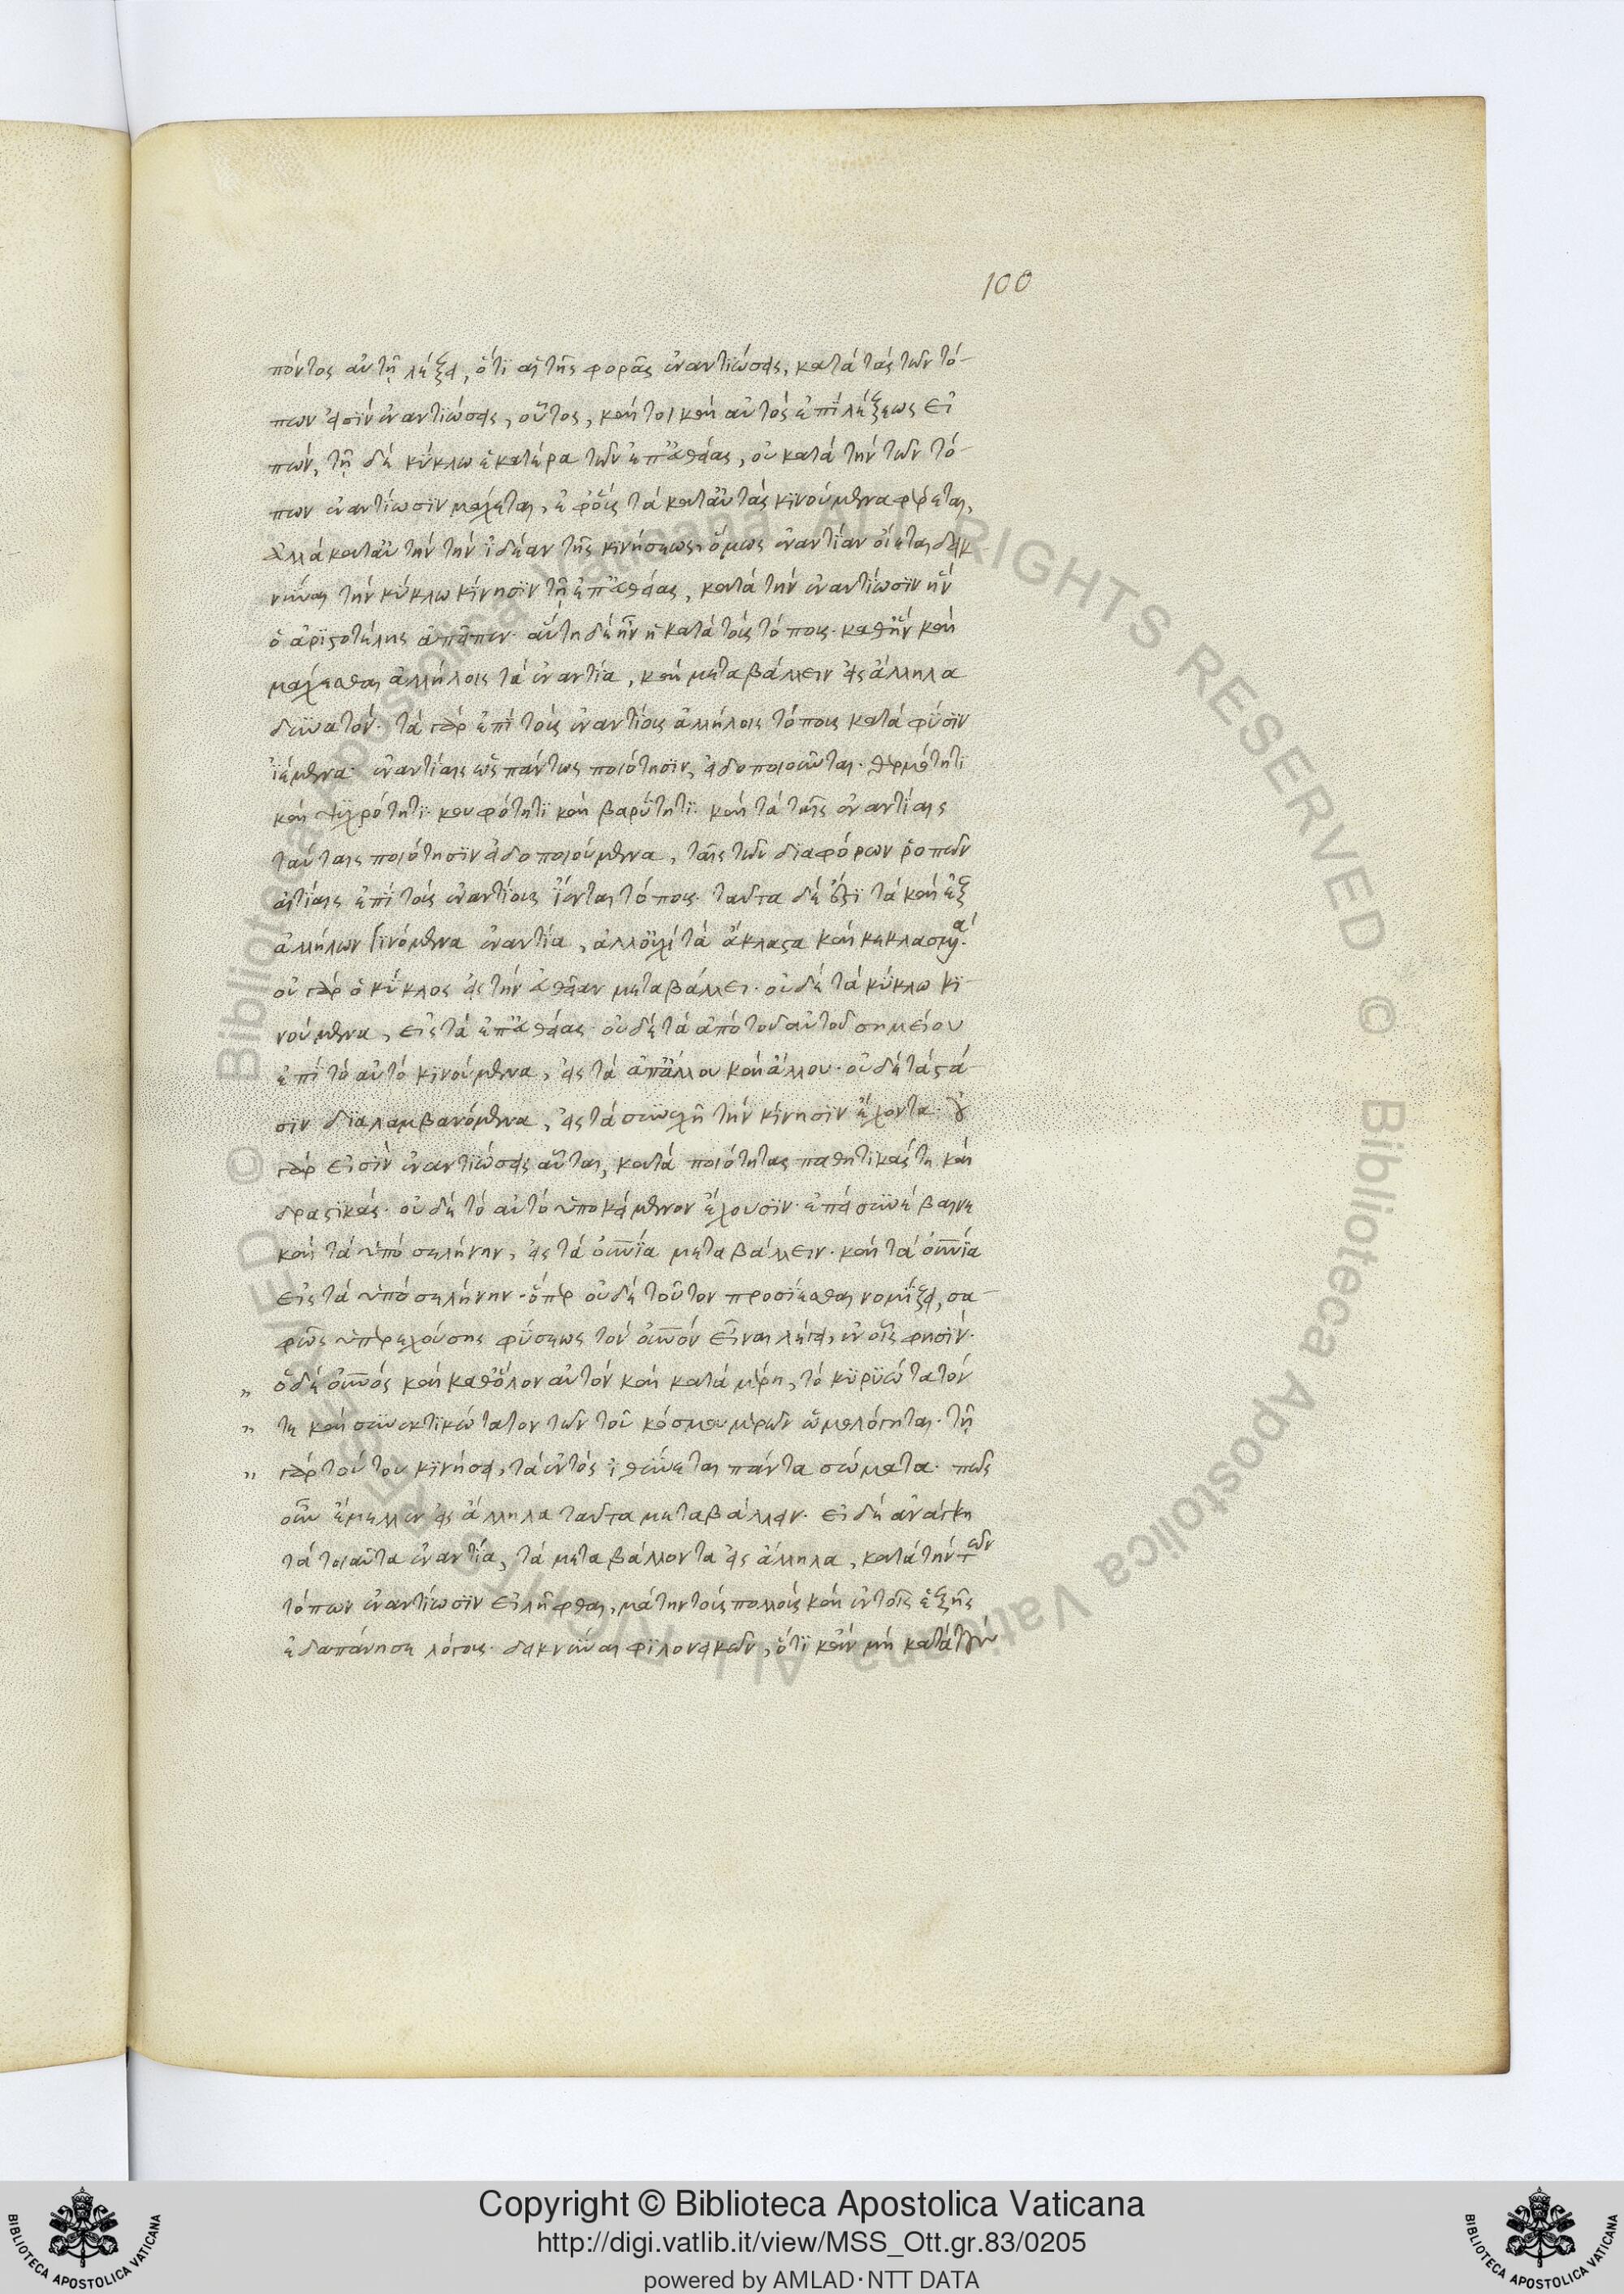 100
πόντος αὐτῇ λέξει, ὅτι αἱ τῆς φορᾶς ἐναντιώσεις, κατὰ τὰς τῶν τό-
πων εἰσὶν ἐναντιώσεις, οὗτος, καί τοι καὶ αὐτὸς ἐπὶ λέξεως εἰ
πών, τῇ δὲ κύκλω ἑκατέρα τῶν ἐπ' εὐθείας, οὐ κατὰ τὴν τῶν τό-
πων ἐναντίωσιν μάχεται, ἐφ' οἷς τὰ κατ' αὐτὰς κινούμενα φέρεται,
ἀλλὰ κατ' αὐτὴν τὴν ἰδέαν τῆς κινήσεως, ὅμως ἐναντίαν οἴεται δεικ
νύναι τὴν κύκλω κίνησιν τῇ ἐπ' εὐθείας, κατὰ τὴν ἐναντίωσιν ἣν
ὁ ἀριστοτέλης εἶπεν· αὕτη δὲ ἦν ἡ κατὰ τοὺς τόπους· καθ' ἣν καὶ
μάχεσθαι ἀλλήλοις τὰ ἐναντία, καὶ μεταβάλλειν εἰς ἄλληλα
δυνατόν· τὰ γὰρ ἐπὶ τοὺς ἐναντίους ἀλλήλοις τόπους κατὰ φύσιν
ἱέμενα· ἐναντίαις ὡς πάντως ποιότησιν, εἰδοποιοῦνται· θερμότητι
καὶ ψυχρότητι· κουφότητι καὶ βαρύτητι· καὶ τὰ ταῖς ἐναντίαις
ταύταις ποιότησιν εἰδοποιούμενα, ταῖς τῶν διαφόρων ῥοπῶν
αἰτίαις ἐπὶ τοὺς ἐναντίους ἵενται τόπους· ταῦτα δέ ἐστι τὰ καὶ ἐξ
ἀλλήλων γινόμενα ἐναντία, ἀλλ' οὐχὶ τὰ ἄκλαστα καὶ κεκλασμένα·
οὐ γὰρ ὁ κύκλος εἰς τὴν εὐθεῖαν μεταβάλλει· οὐδὲ τὰ κύκλω κι-
νούμενα, εἰς τὰ ἐπ' εὐθείας· οὐδὲ τὰ ἀπὸ τοῦ αὐτοῦ σημείου
ἐπὶ τὸ αὐτὸ κινούμενα, εἰς τὰ ἀπ' ἄλλου καὶ ἄλλου· οὐδὲ τὰ στά-
σιν διαλαμβανόμενα, εἰς τὰ συνεχῆ τὴν κίνησιν ἔχοντα· οὐ
γὰρ εἰσὶν ἐναντιώσεις αὗται, κατὰ ποιότητας παθητικάς τε καὶ
δραστικάς· οὐδὲ τὸ αὐτὸ ὑποκείμενον ἔχουσιν· ἐπεὶ συνέβαινε
καὶ τὰ ὑπὸ σελήνην, εἰς τὰ οὐνια μεταβάλλειν· καὶ τὰ οὐνια
εἰς τὰ ὑπὸ σελήνην· ὅπερ οὐδὲ τοῦτον προσίεσθαι νομίζω, σα-
φῶς ὑπερεχούσης φύσεως τὸν οὐνὸν εἶναι λέγει, ἐν οἷς φησίν·
" ὁ δὲ οὐνὸς καὶ καθ' ὅλον αὐτὸν καὶ κατὰ μέρη, τὸ κυριώτατόν
" τε καὶ συνεκτικώτατον τῶν τοῦ κόσμου μερῶν ὡμολόγηται· τῇ
" γὰρ τούτου κινήσει, τὰ ἐντὸς ἰθύνεται πάντα σώματα· πῶς
οὖν ἔμελλεν εἰς ἄλληλα ταῦτα μεταβάλλειν· εἰ δὲ ἀνάγκη
τὰ τοιαῦτα ἐναντία, τὰ μεταβάλλοντα εἰς ἄλληλα, κατὰ τὴν τῶν
τόπων ἐναντίωσιν εἰλῆφθαι, μάτην τοὺς πολλοὺς καὶ ἐν τοῖς ἑξῆς
ἐδαπάνησε λόγους· δεικνύναι φιλονεικῶν, ὅτι κἂν μὴ κατὰ τὴν
Copyright © Biblioteca Apostolica Vaticana
http://digi.vatlib.it/view/MSS_Ott.gr.83/0205
powered by AMLAD·NTT DATA